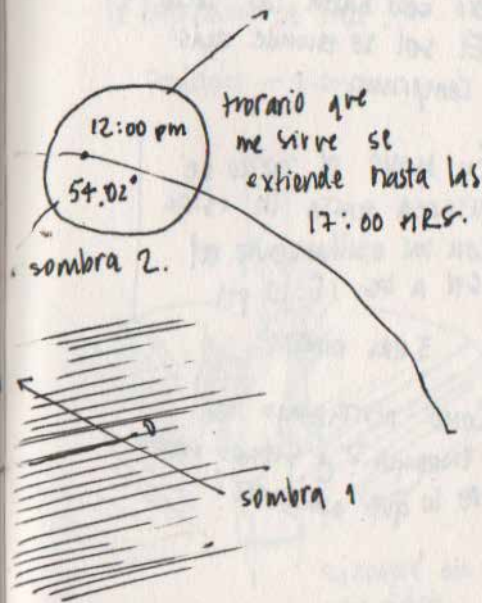 12:00 pm
54.02°
horario que
me sirve se
extiende hasta las
17:00 HRS.
sombra 2.
sombra 1